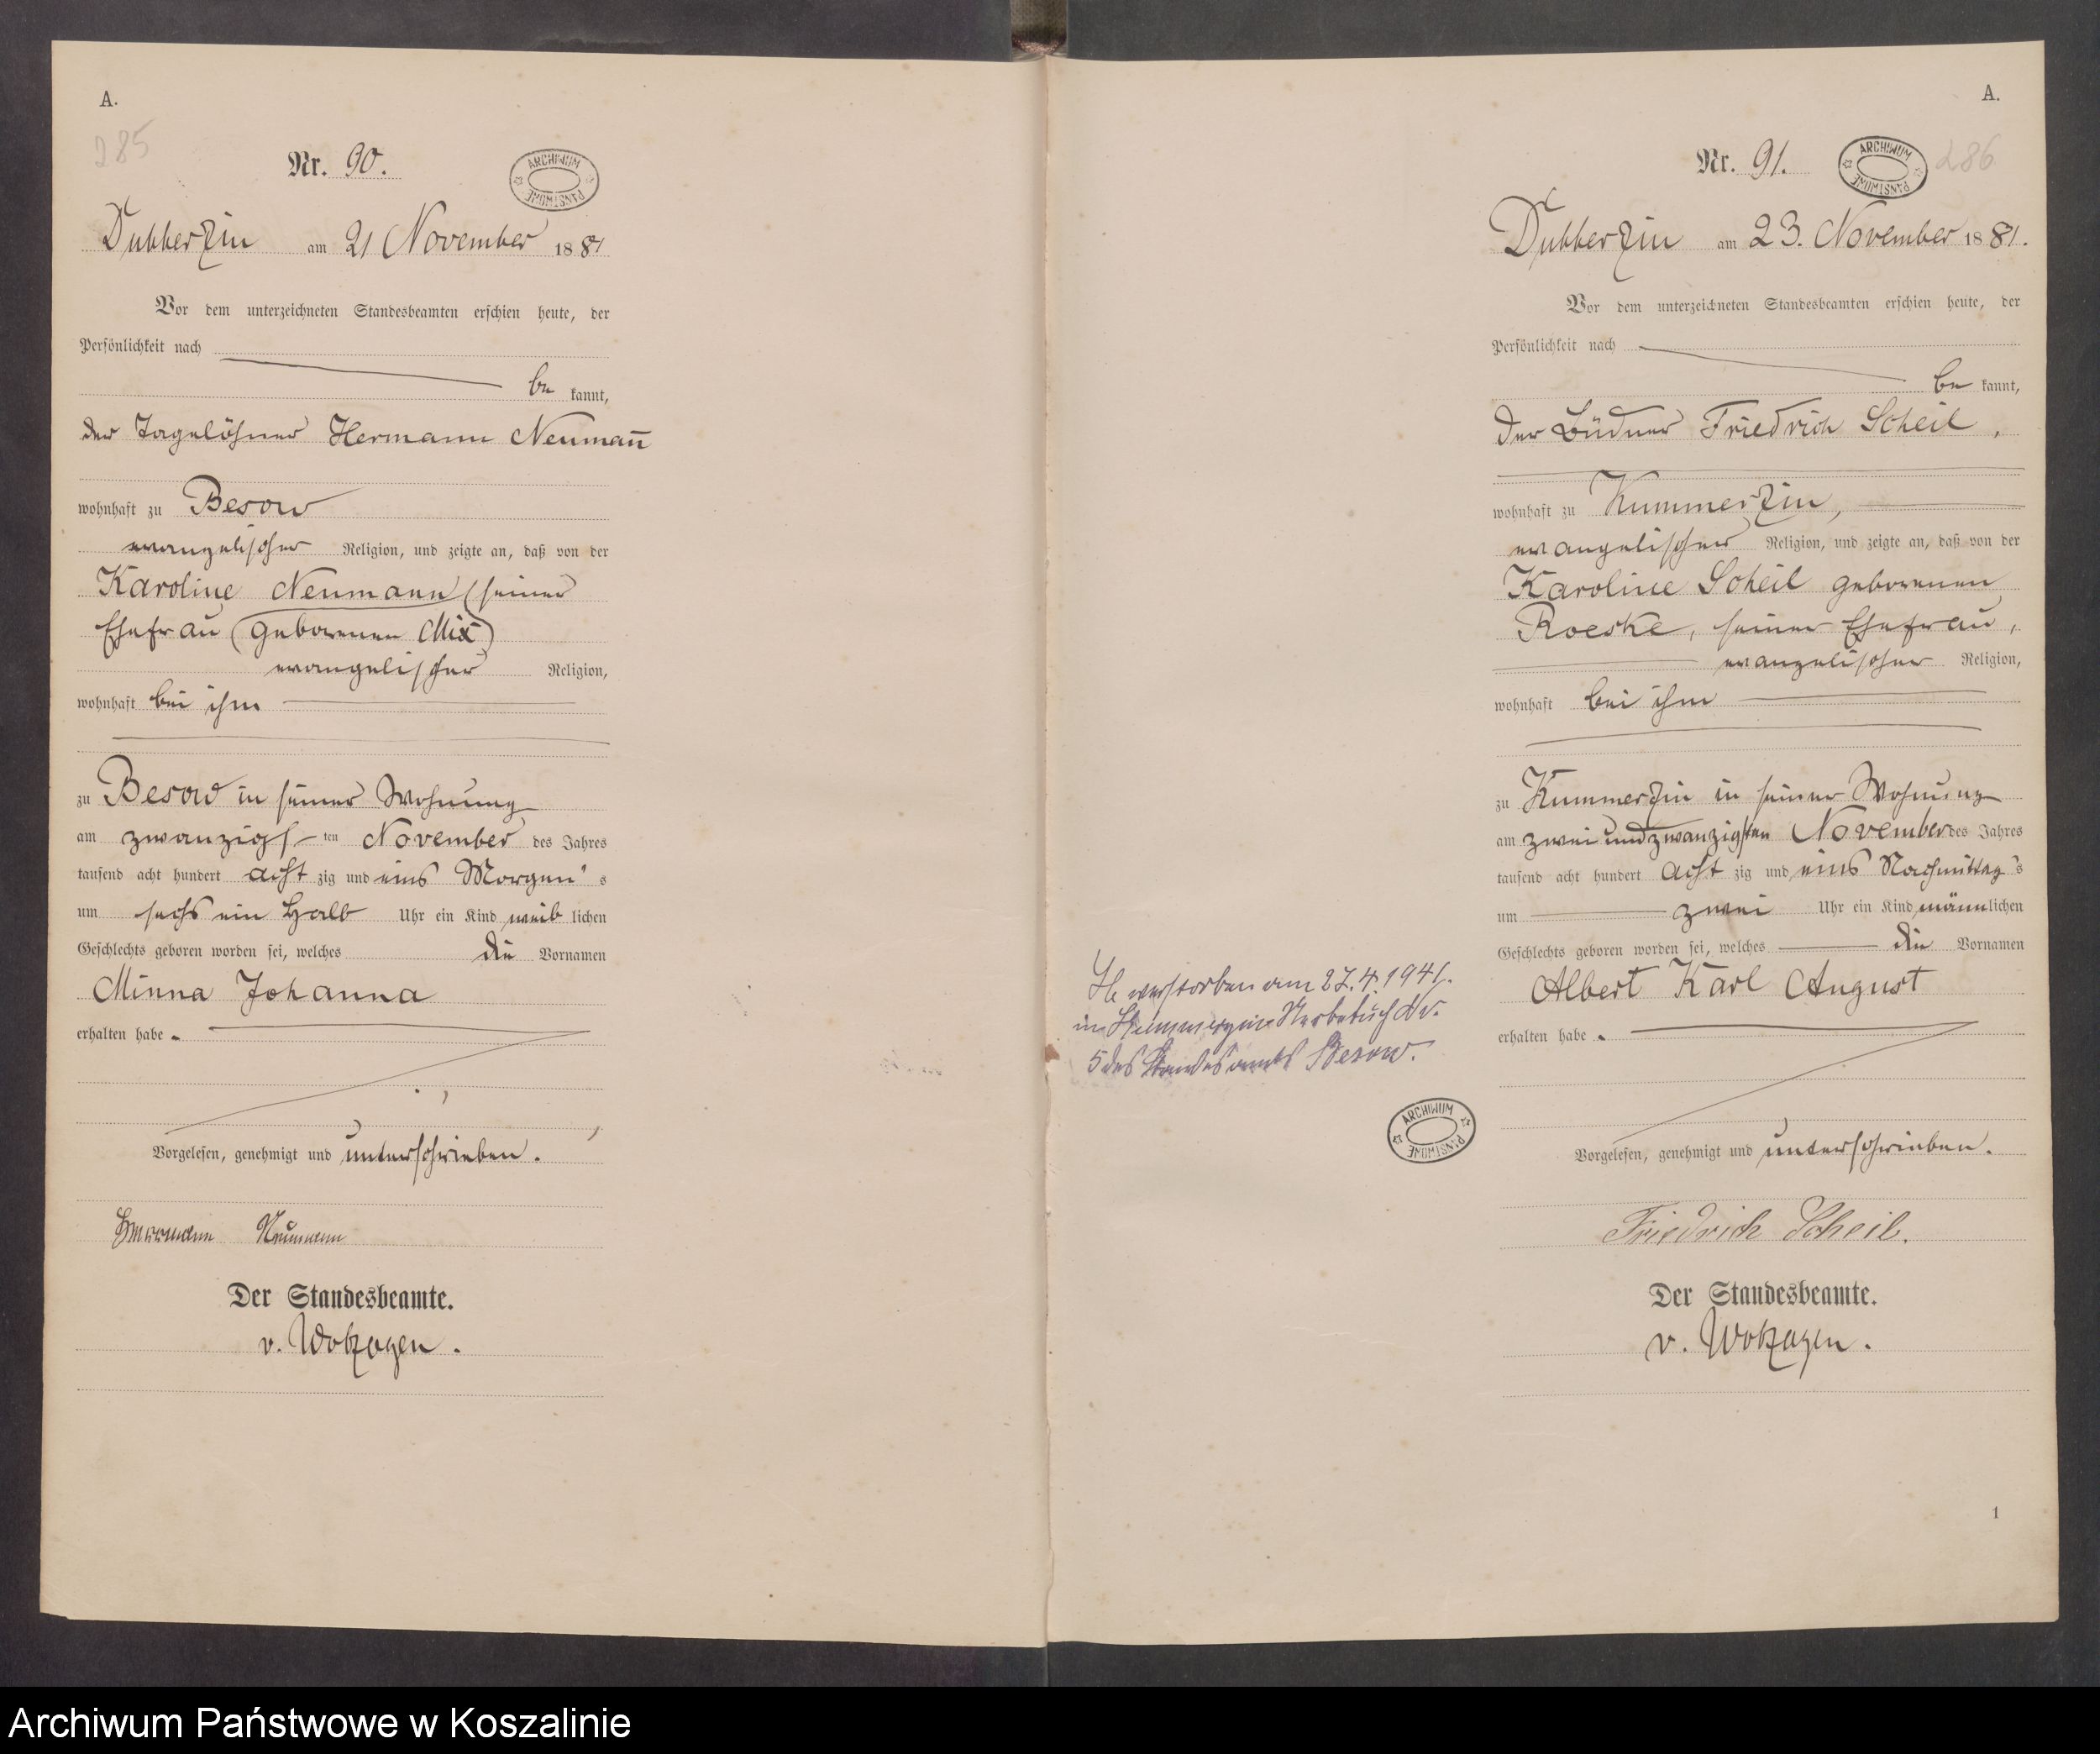 A.
285
Nr. 90.
ARCHIWUM PAŃSTWOWE
Dubberzin am 21 November 1881
Vor dem unterzeichneten Standesbeamten erschien heute, der
Persönlichkeit nach
be kannt,
der Tagelöhner Hermann Neumann̄
wohnhaft zu Besow
evangelischer Religion, und zeigte an, daß von der
Karoline Neumann (seiner
Ehefrau (geborenen Mix)
evangelischer Religion,
wohnhaft bei ihm
zu Besow in seiner Wohnung
am zwanzigs ten November des Jahres
tausend acht hundert acht zig und eins Morgen s
um sechs ein halb Uhr ein Kind weib lichen
Geschlechts geboren worden sei, welches die Vornamen
Minna Johanna
erhalten habe.
Vorgelesen, genehmigt und unterschrieben.
Hermann Neumann
Der Standesbeamte.
v. Wolzogen.
A.
286
Nr. 91.
ARCHIWUM PAŃSTWOWE
Dubberzin am 23. November 1881.
Vor dem unterzeichneten Standesbeamten erschien heute, der
Persönlichkeit nach
be kannt,
der Büdner Friedrich Scheil,
wohnhaft zu Kummerzin,
evangelischer Religion, und zeigte an, daß von der
Karoline Scheil geborenen
Roeske, seiner Ehefrau,
evangelischer Religion,
wohnhaft bei ihm
zu Kummerzin in seiner Wohnung
am zwei und zwanzigsten November des Jahres
tausend acht hundert acht zig und eins Nachmittag s
um zwei Uhr ein Kind männlichen
Geschlechts geboren worden sei, welches die Vornamen
Albert Karl August
erhalten habe.
Vorgelesen, genehmigt und unterschrieben.
Friedrich Scheil.
Der Standesbeamte.
v. Wolzogen.
1
verstorben am 27.4.1941.
in Kummerzin Sterbebuch Nr.
5 des Standesamts Besow.
ARCHIWUM PAŃSTWOWE
Archiwum Państwowe w Koszalinie